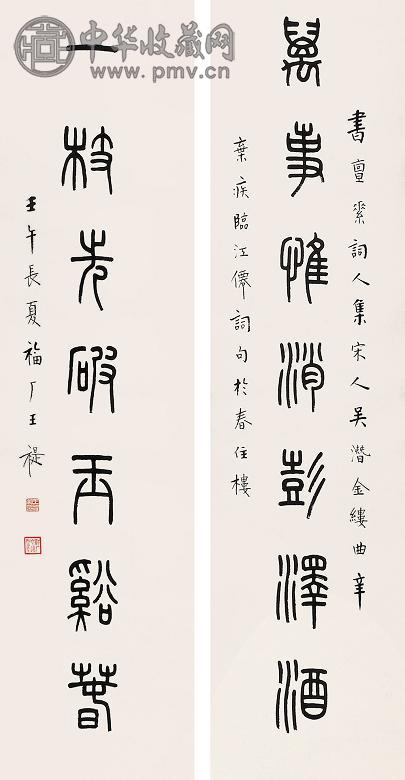 中华收藏网
www.pmv.cn
萬事惟消彭澤酒
書亶素詞人集宋人吳潛金縷曲辛
棄疾臨江僊詞句於春住樓
一枝先破玉谿春
壬午長夏福厂王禔